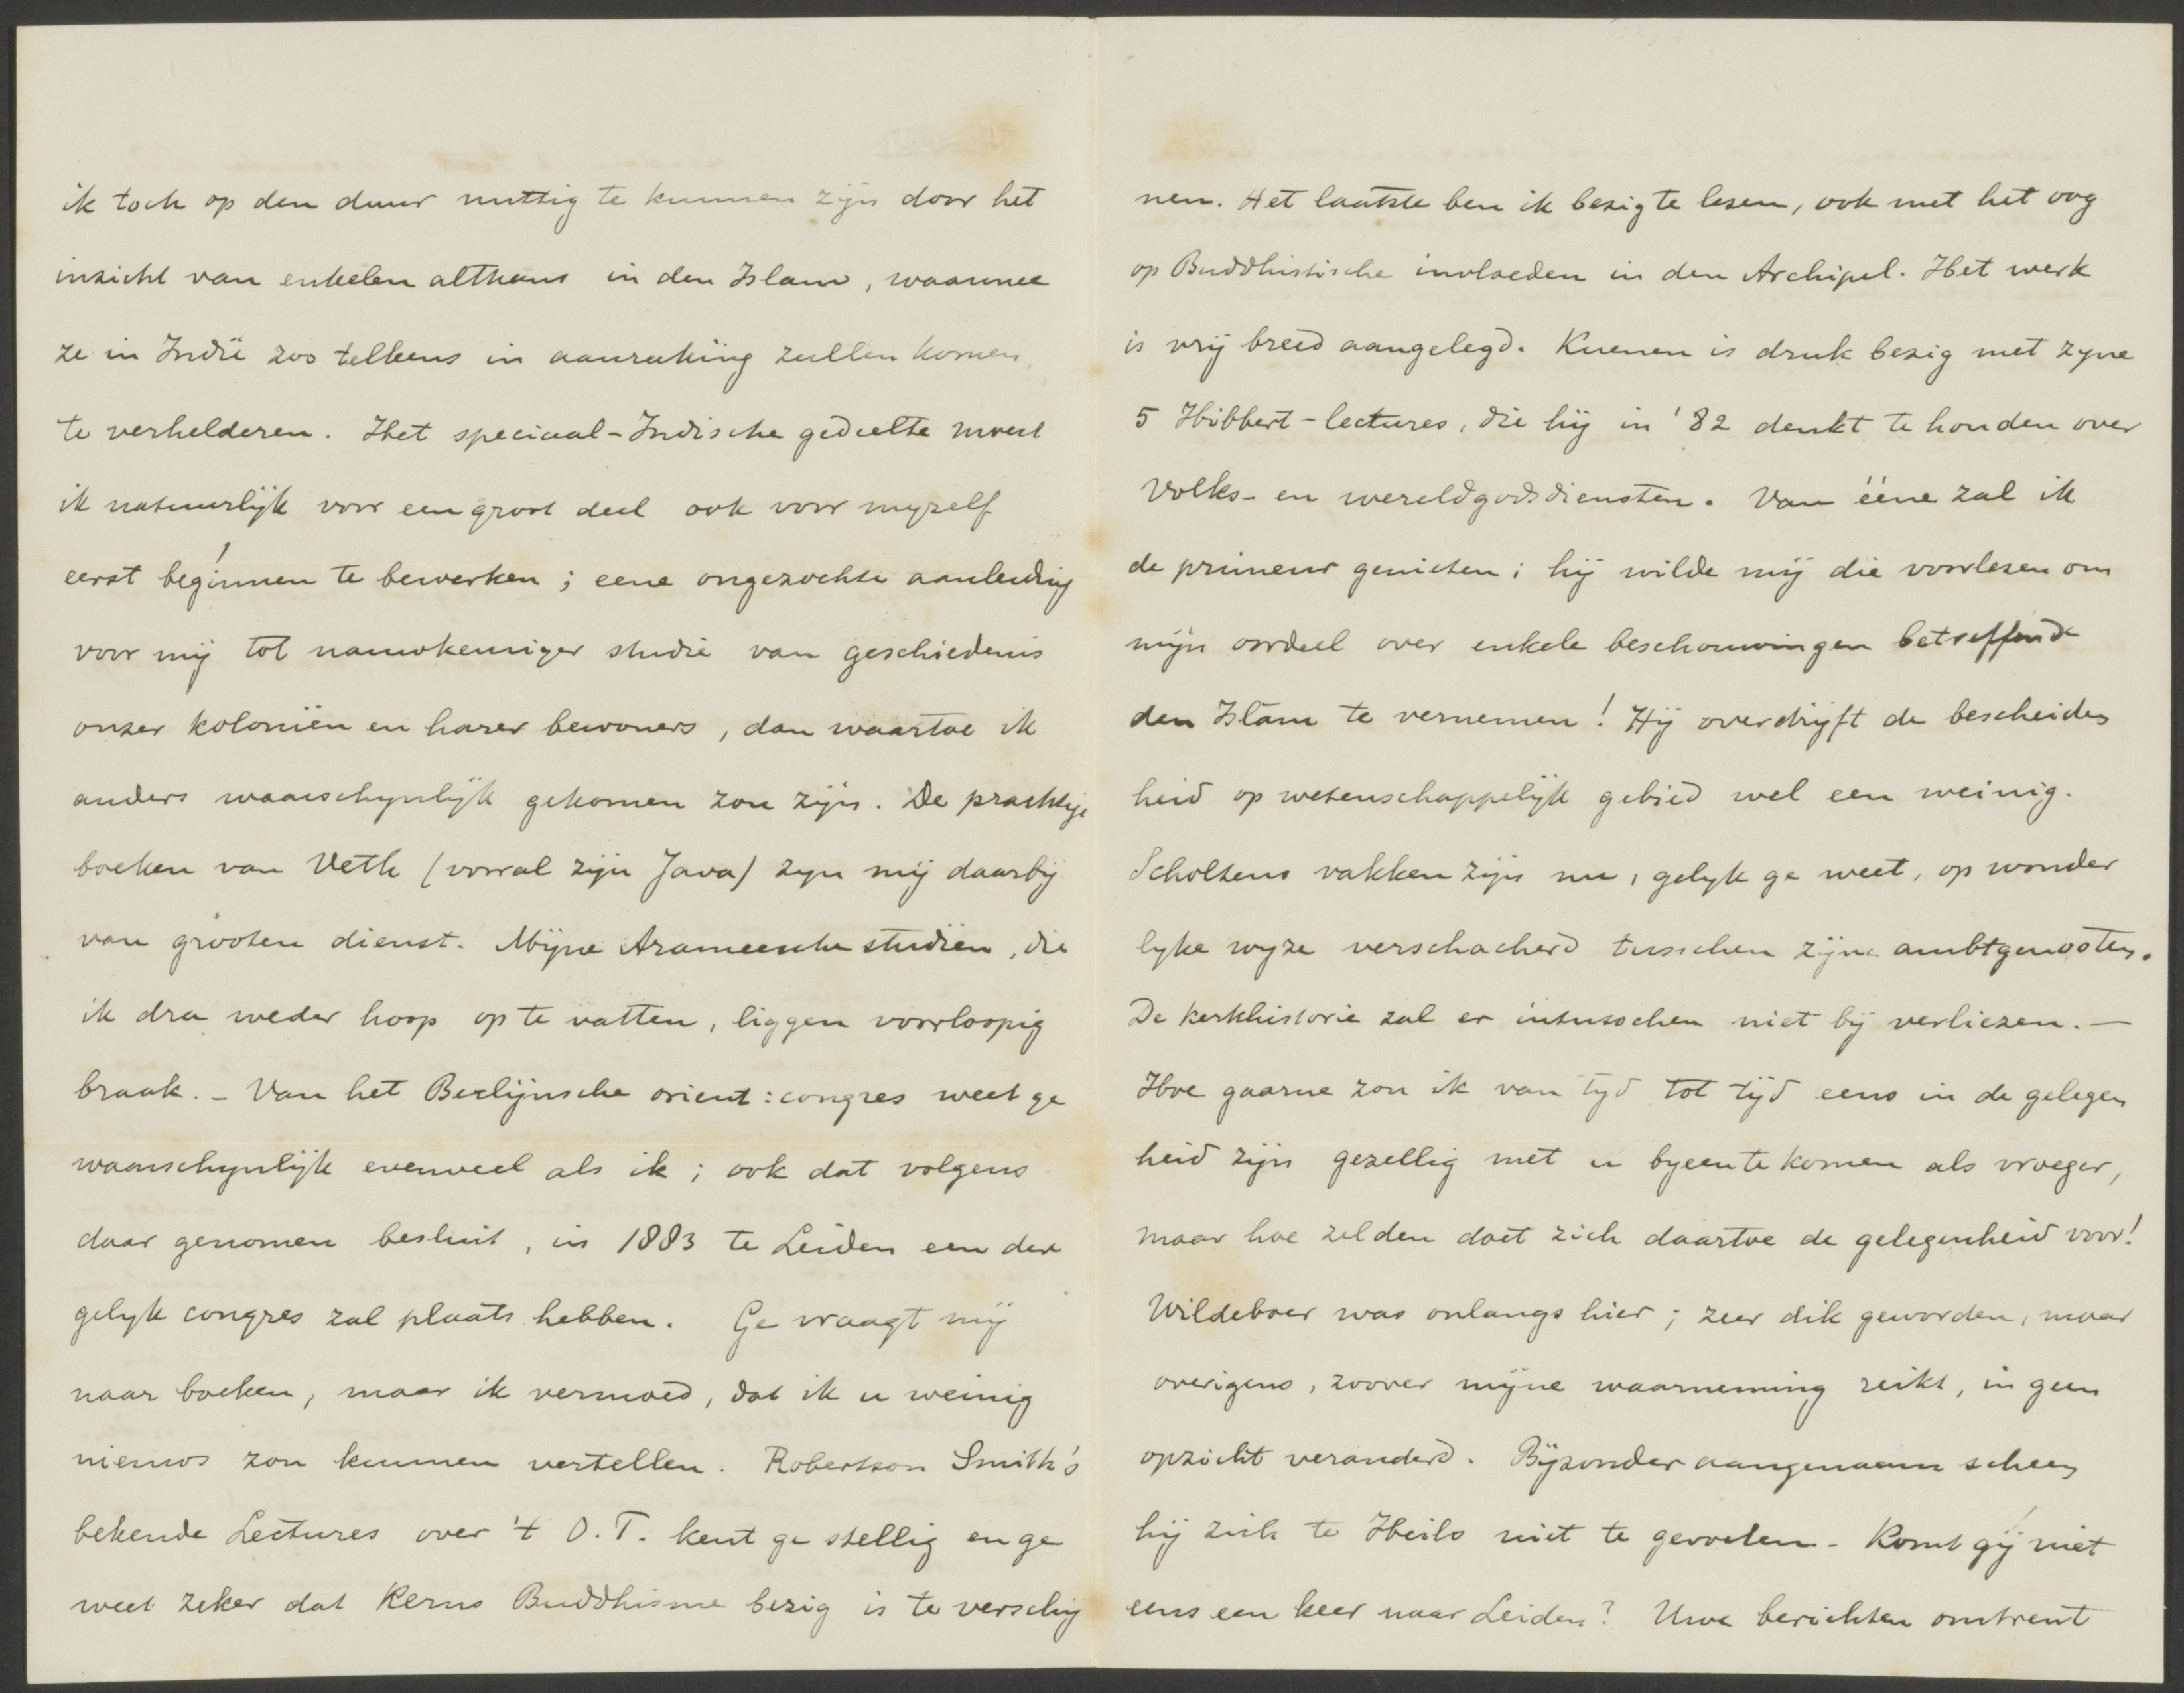 ik toch op den duur nuttig te kunnen zijn door het
inzicht van enkelen althans in den Islam, waarmee
ze in Indië zoo telkens in aanraking zullen komen,
te verhelderen. Het speciaal-Indische gedeelte moest
ik natuurlijk voor een groot deel ook voor myzelf
eerst beginnen te bewerken; eene ongezochte aanleiding
voor mij tot nauwkeuriger studie van geschiedenis
onzer koloniën en harer bewoners, dan waartoe ik
anders waarschynlijk gekomen zou zijn. De prachtige
boeken van Veth (vooral zijn Java) zyn mij daarbij
van grooten dienst. Mijne Arameesche studiën, die
ik dra weder hoop op te vatten, liggen voorloopig
braak. – Van het Berlijnsche orient: congres weet ge
waarschynlijk evenveel als ik; ook dat volgens
daar genomen besluit, in 1883 te Leiden een der
gelyk congres zal plaats hebben. Ge vraagt mij
naar boeken, maar ik vermoed, dat ik u weinig
nieuws zou kunnen vertellen. Robertson Smith's
bekende Lectures over 't O.T. kent ge stellig en ge
weet zeker dat Kerns Buddhisme bezig is te verschij
nen. Het laatste ben ik bezig te lezen, ook met het oog
op Buddhistische invloeden in den Archipel. Het werk
is vrij breed aangelegd. Kuenen is druk bezig met zyne
5 Hibbert-lectures, die hij in '82 denkt te houden over
volks- en wereldgodsdiensten. Van ééne zal ik
de primeur genieten; hij wilde mij die voorlezen om
mijn oordeel over enkele beschouwingen betreffende
den Islâm te vernemen! Hij overdrijft de bescheiden
heid op wetenschappelijk gebied wel een weinig.
Scholtens vakken zijn nu, gelyk ge weet, op wonder
lyke wyze verschacherd tusschen zijne ambtgenooten.
De kerkhistorie zal er intusschen niet bij verliezen. —
Hoe gaarne zou ik van tyd tot tijd eens in de gelegen
heid zijn gezellig met u byeen te komen als vroeger,
maar hoe zelden doet zich daartoe de gelegenheid voor!
Wildeboer was onlangs hier; zeer dik geworden, maar
overigens, zoover mijne waarneming reikt, in geen
opzicht veranderd. Bijzonder aangenaam scheen
hij zich te Heilo niet te gevoelen – Komt gij niet
eens een keer naar Leiden? Uwe berichten omtrent